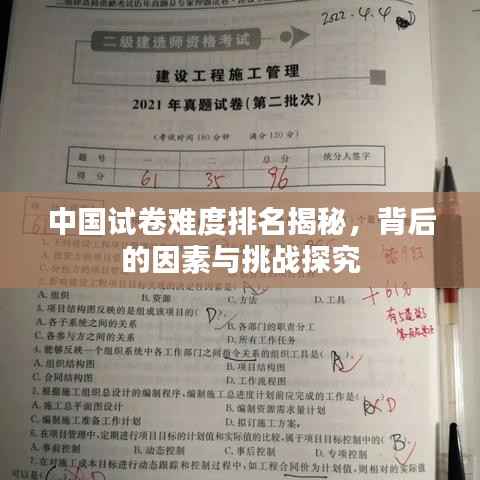 2022.4.4
二级建造师资格考试
建设工程施工管理
2021年真题试卷(第二批次)
(考试时间180分钟 满分120分)
题号 一 二 总分 统分人签字
得分 61 35 96
中国试卷难度排名揭秘，背后
的因素与挑战探究
A.组织 B.资源 C.方法 D.工具
3.项目结构图反映的是组成该项目的( D )
A.各子系统之间的关系 B.各部门的职责分工
C.各参与方之间的关系 D.所有工作任务
4.能够反映一个组织系统中各工作部门之间指令关系的组织工具是( A )
A.组织结构图 B.项目结构图
C.合同结构图 D.工作流程图
5.根据施工组织总设计的编制程序,编制施工总进度计划前应完成的工作是(
A.施工总平面图设计 B.编制资源需求量计划
C.编制施工准备工作计划 D.拟订施工方案
6.在项目管理中,定期进行项目目标的计划值和实际值的比较,属于项目目标控制中的(
A.动态控制 B.事后控制 C.事前控制 D.专项控制
7.在对施工成本目标进行动态跟踪和控制过程中,如工程合同价为计划值,则相对的实际值
可以是(